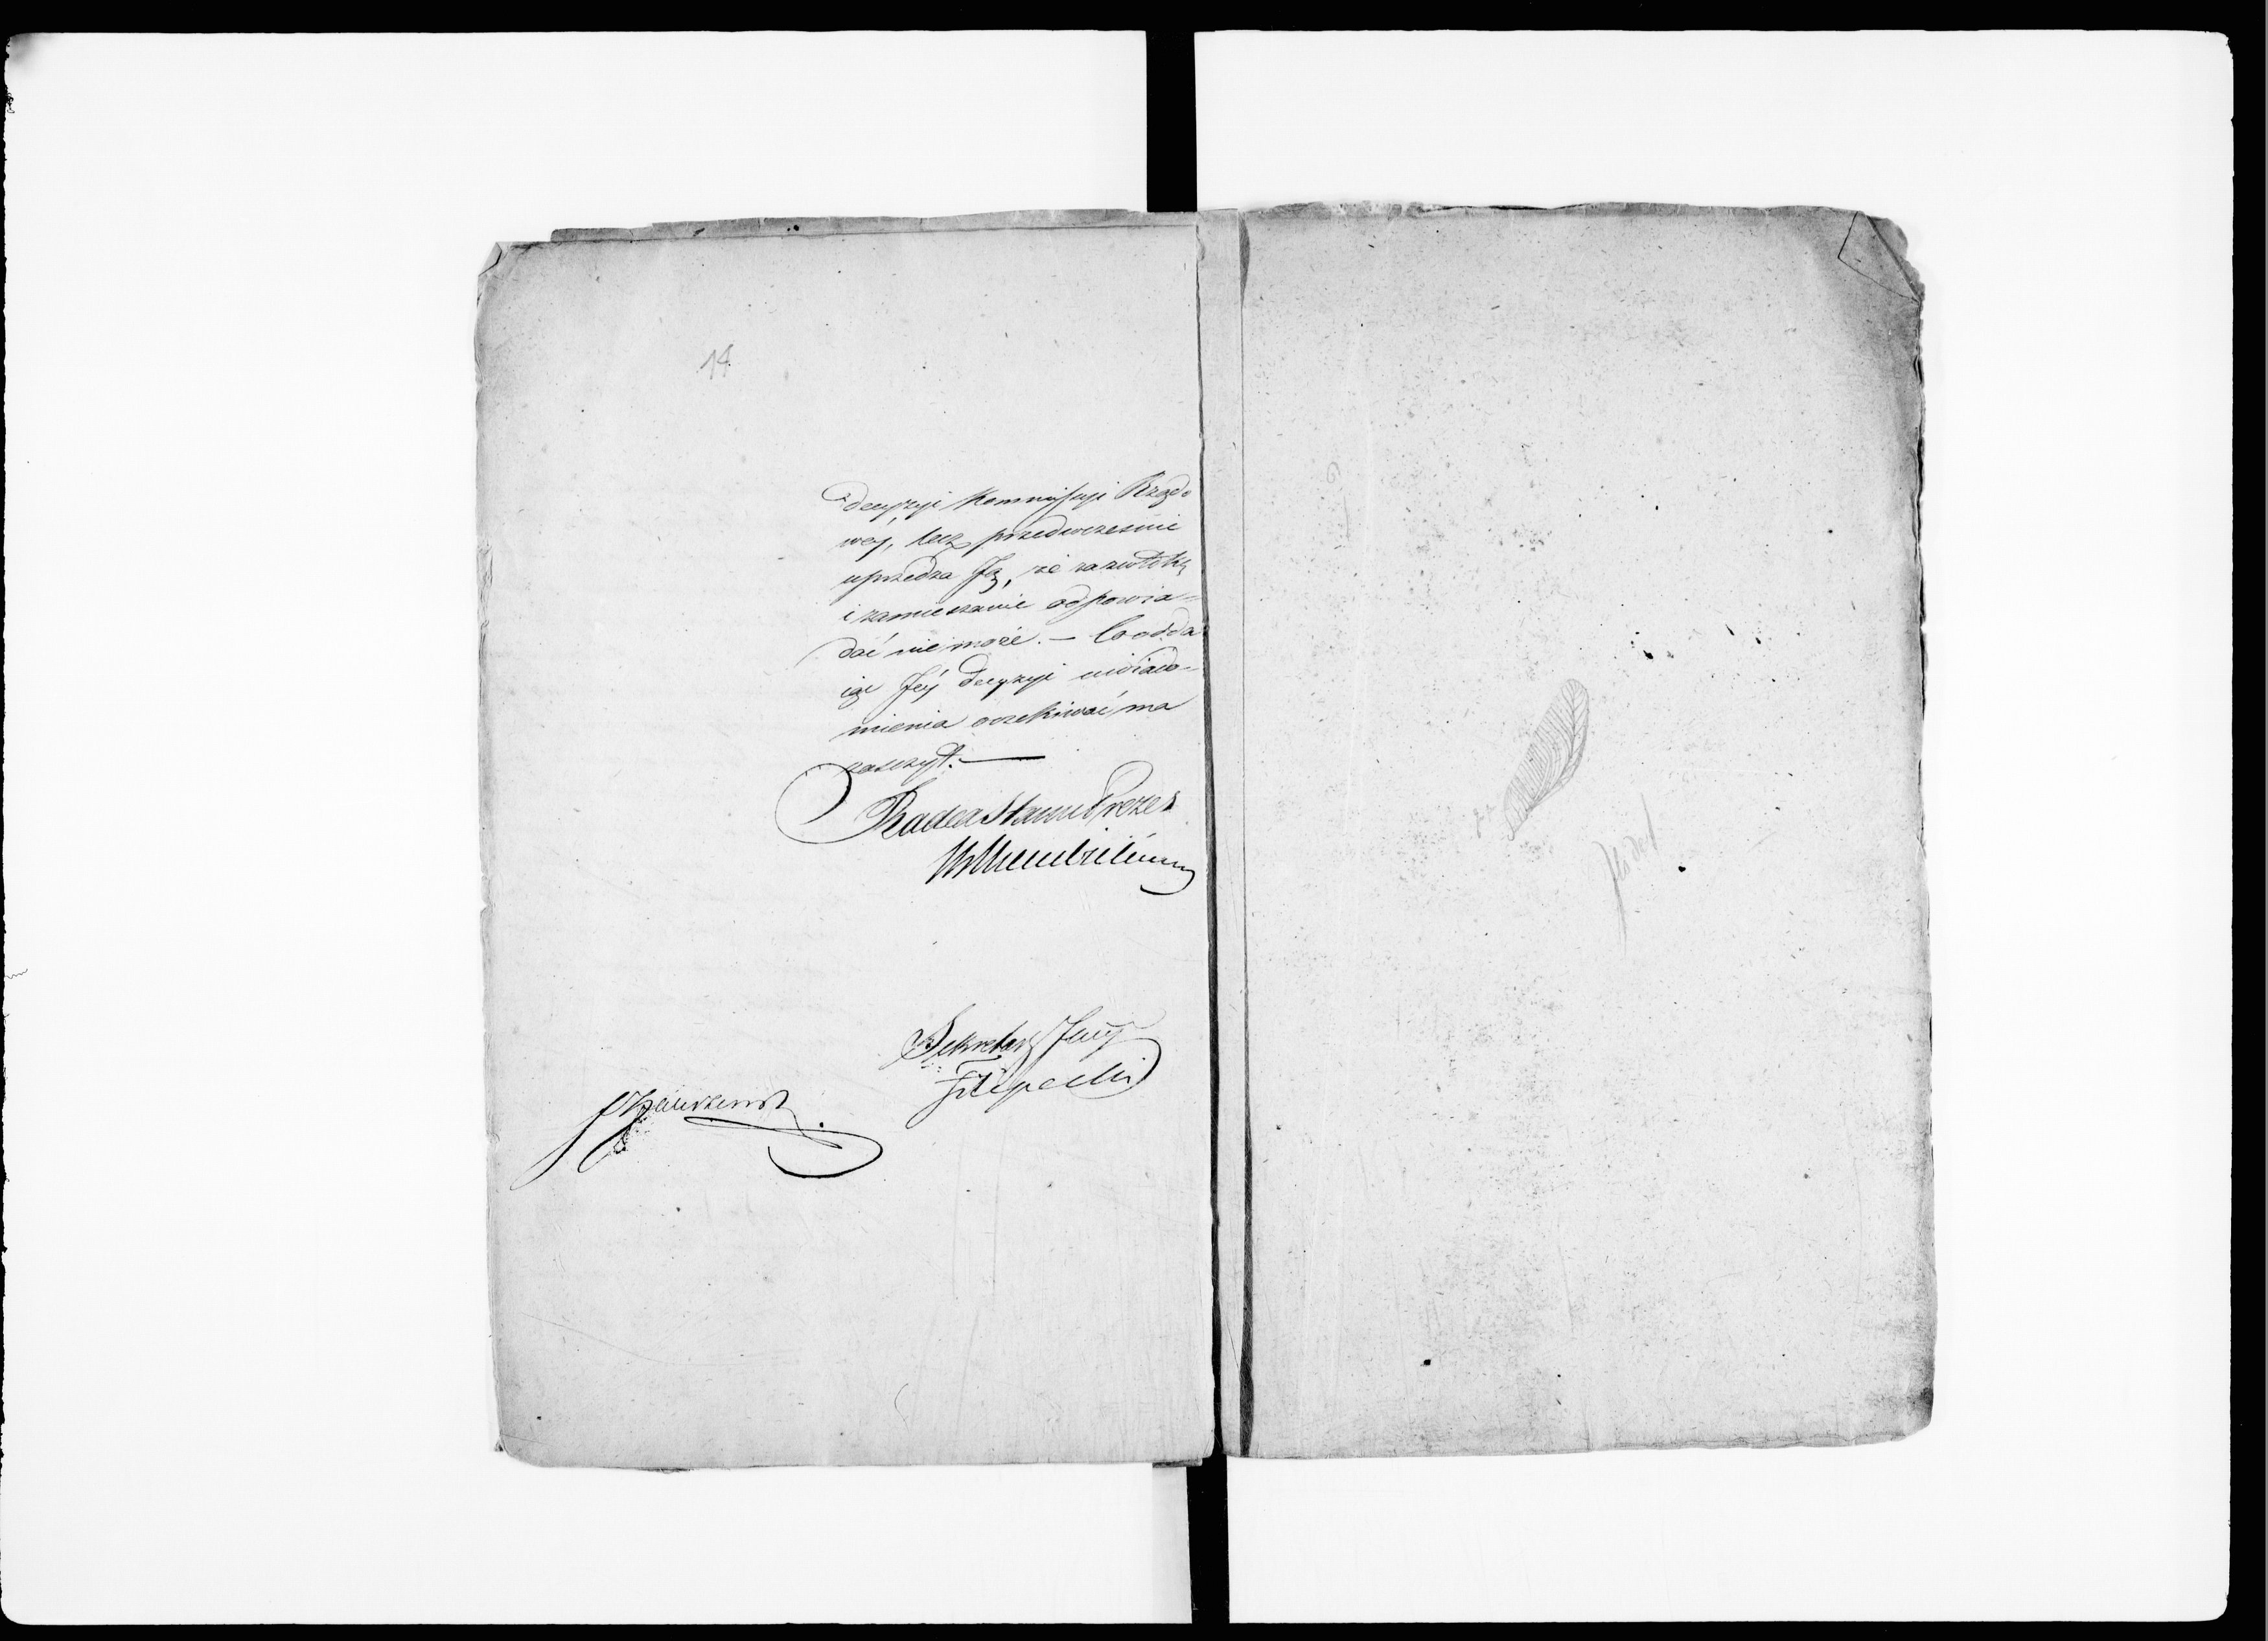 14
decyzyi Kommissyi Rządo
wey, lecz przedwcześnie
uprzedza Ją, że za zwłokę
i zamieszanie odpowia-
dać nie może. — Co do da
ią Jéy decyzyi uwiado-
mienia oczekiwać ma
zaszczyt. —
Radca Stanu Prezes
Sekretarz Jlny
Filipecki